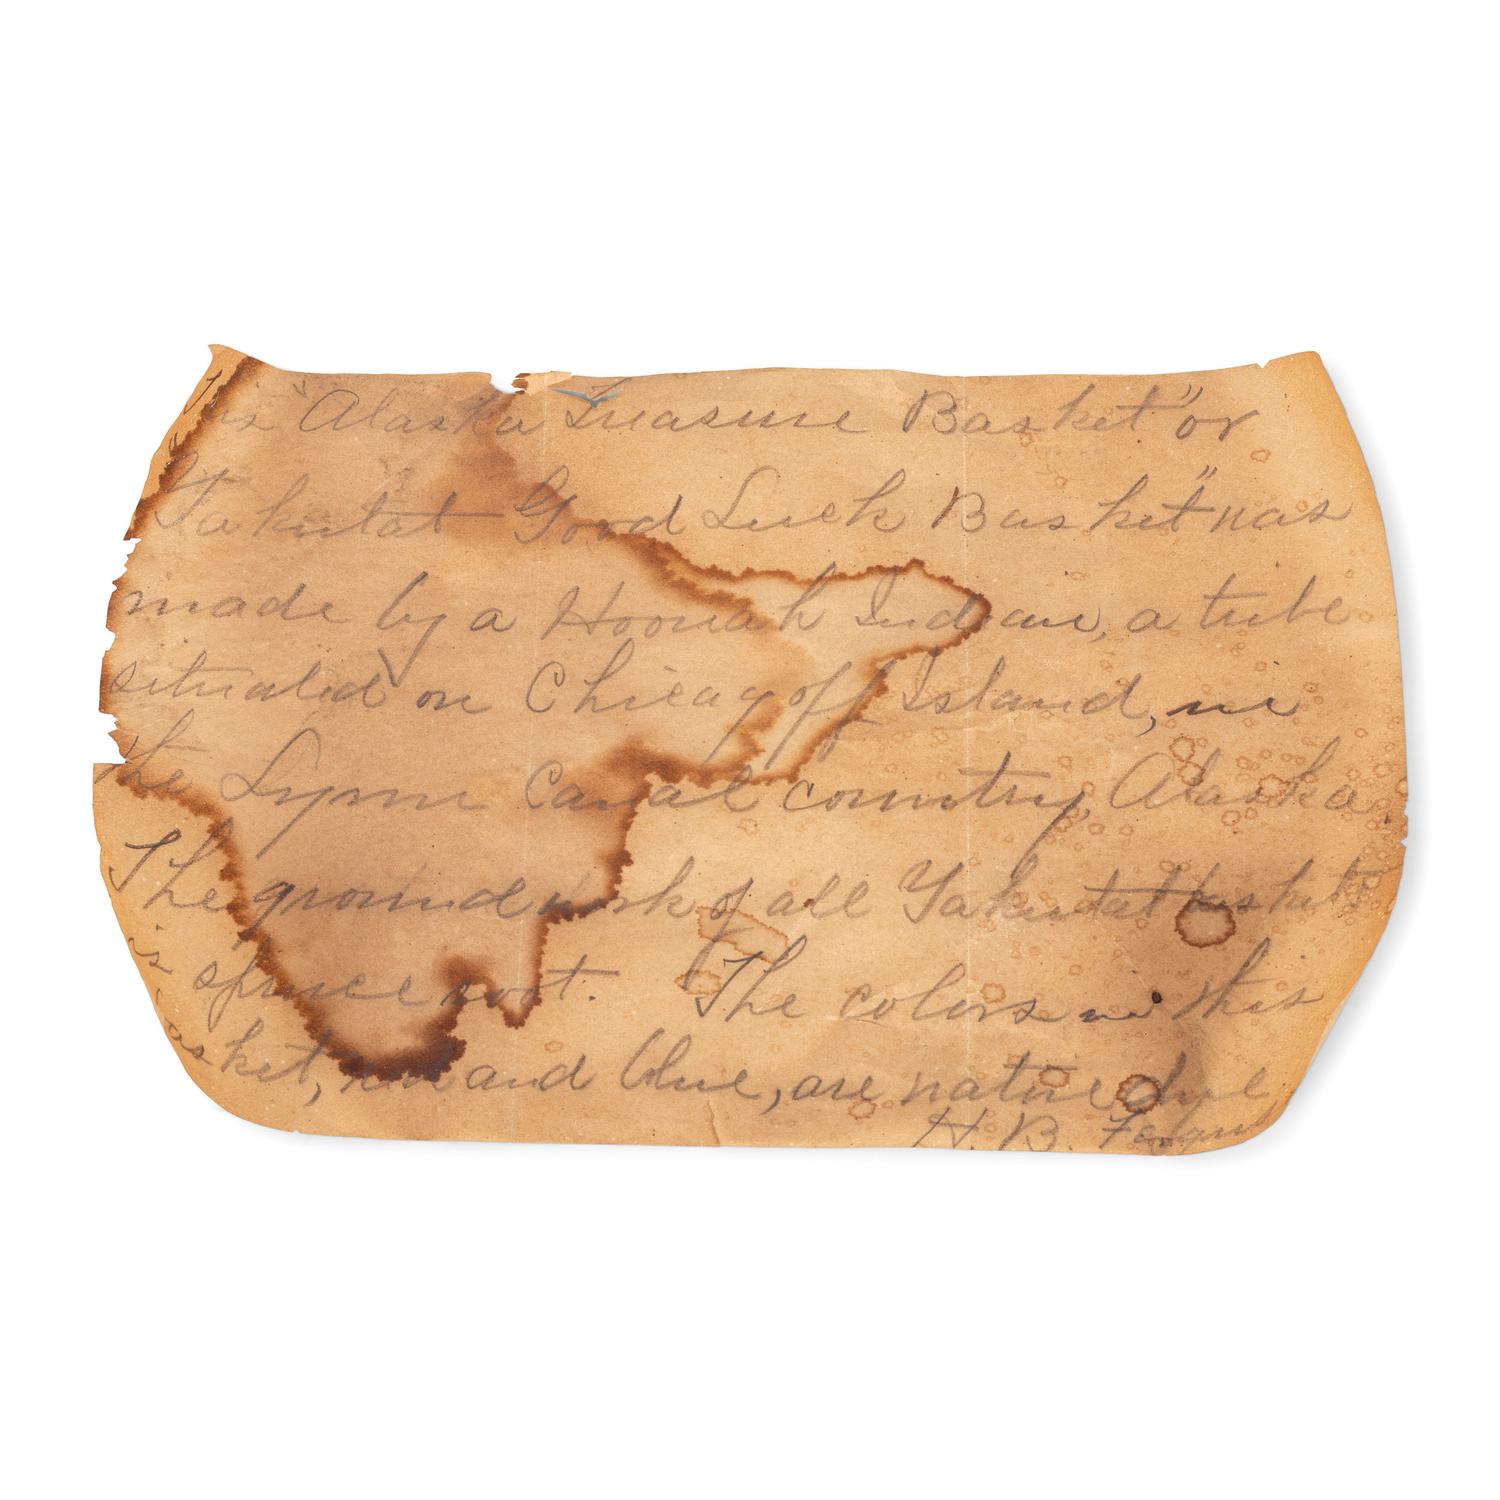 This "Alaska Treasure Basket" or
Yakutat Good Luck Basket" was
made by a Hoonah Indian, a tribe
situated on Chicagoff Island, in
the Lynn Canal country, Alaska.
The ground work of all Yakutat baskets
is spruce root. The colors in this
basket, red and blue, are native dye
H. B.